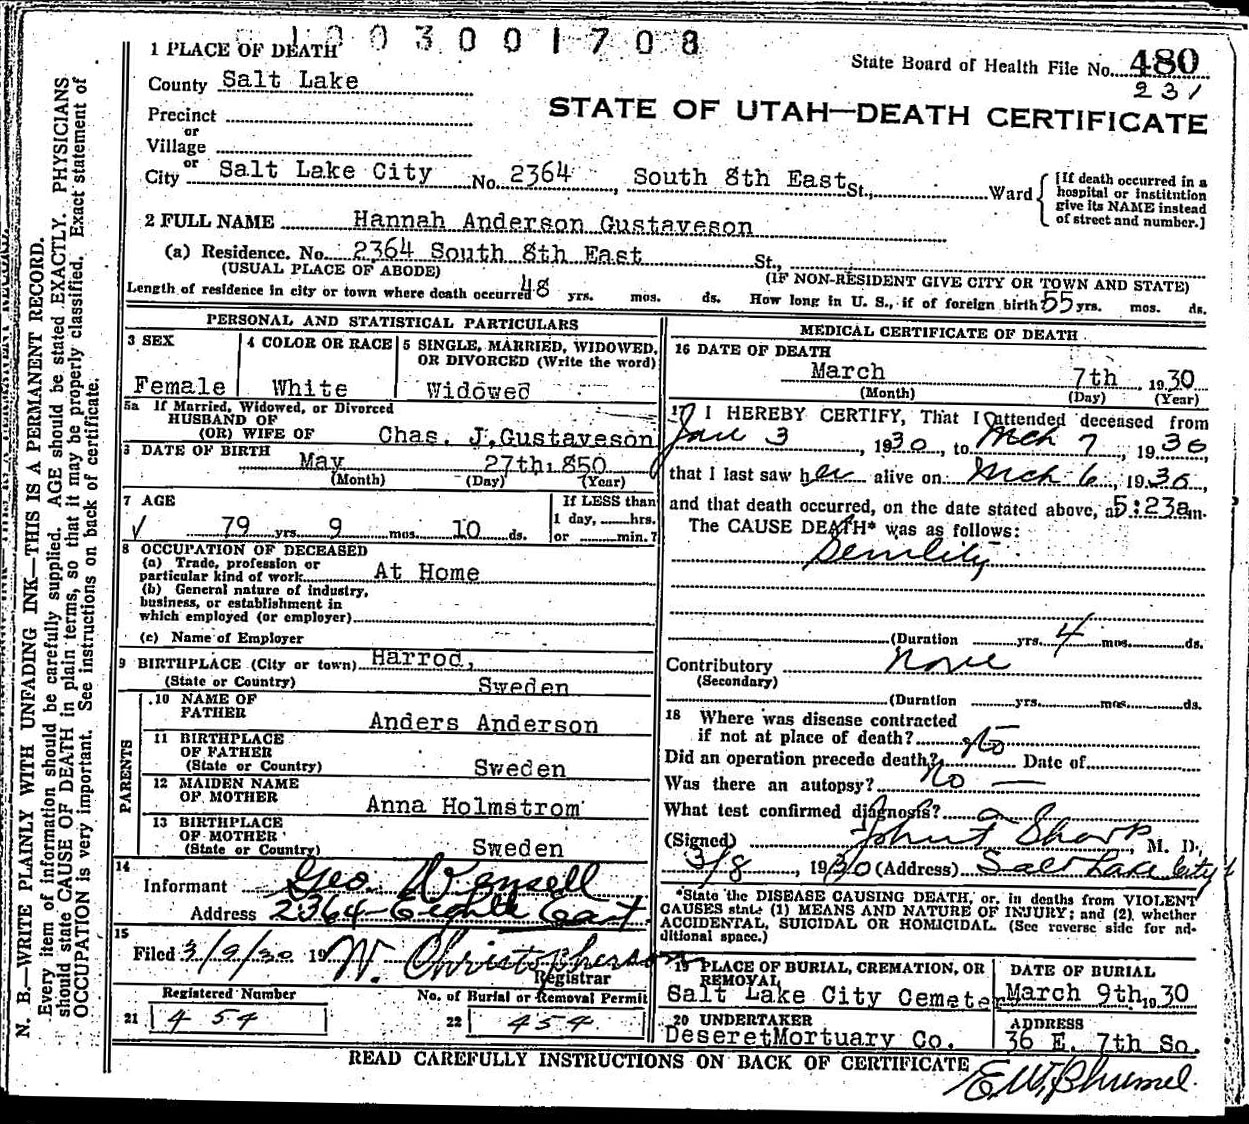 1003001708
1 PLACE OF DEATH
State Board of Health File No. 480
County Salt Lake
231
STATE OF UTAH—DEATH CERTIFICATE
Precinct
or
Village
or
City Salt Lake City No. 2364, South 8th East St., Ward
[If death occurred in a
hospital or institution
give its NAME instead
of street and number.]
2 FULL NAME Hannah Anderson Gustaveson
(a) Residence. No. 2364 South 8th East St.,
(USUAL PLACE OF ABODE) (IF NON-RESIDENT GIVE CITY OR TOWN AND STATE)
Length of residence in city or town where death occurred 48 yrs. mos. ds. How long in U. S., if of foreign birth 55 yrs. mos. ds.
PERSONAL AND STATISTICAL PARTICULARS
3 SEX
Female
4 COLOR OR RACE
White
5 SINGLE, MARRIED, WIDOWED,
OR DIVORCED (Write the word)
Widowed
5a If Married, Widowed, or Divorced
HUSBAND OF
(OR) WIFE OF Chas. J. Gustaveson
DATE OF BIRTH
May 27th 1850
(Month) (Day) (Year)
7 AGE
79 yrs. 9 mos. 10 ds.
If LESS than
1 day, hrs.
or min.?
8 OCCUPATION OF DECEASED
(a) Trade, profession or
particular kind of work At Home
(b) General nature of industry,
business, or establishment in
which employed (or employer)
(c) Name of Employer
9 BIRTHPLACE (City or town) Harrod,
(State or Country) Sweden
PARENTS
10 NAME OF
FATHER Anders Anderson
11 BIRTHPLACE
OF FATHER
(State or Country) Sweden
12 MAIDEN NAME
OF MOTHER Anna Holmstrom
13 BIRTHPLACE
OF MOTHER
(State or Country) Sweden
14
Informant Geo. Wensell
Address 2364 Eighth East
15
Filed 3/9/30 19 W. Christopherson
Registrar
Registered Number
21 454
No. of Burial or Removal Permit
22 454
MEDICAL CERTIFICATE OF DEATH
16 DATE OF DEATH
March 7th, 1930
(Month) (Day) (Year)
17 I HEREBY CERTIFY, That I attended deceased from
Jan 3, 1930, to Mch 7, 1930
that I last saw her alive on Mch 6, 1930,
and that death occurred, on the date stated above, at 5:23am.
The CAUSE DEATH* was as follows:
Senility
(Duration yrs. 4 mos. ds.
Contributory None
(Secondary)
(Duration yrs. mos. ds.
18 Where was disease contracted
if not at place of death? No
Did an operation precede death? Date of
Was there an autopsy? No —
What test confirmed diagnosis?
(Signed) John F Sharp, M. D.,
3/8, 1930 (Address) Salt Lake City
*State the DISEASE CAUSING DEATH, or, in deaths from VIOLENT
CAUSES state (1) MEANS AND NATURE OF INJURY; and (2) whether
ACCIDENTAL, SUICIDAL OR HOMICIDAL. (See reverse side for ad-
ditional space.)
19 PLACE OF BURIAL, CREMATION, OR
REMOVAL
Salt Lake City Cemeter
DATE OF BURIAL
March 9th, 1930
20 UNDERTAKER
Deseret Mortuary Co.
ADDRESS
36 E. 7th So.
READ CAREFULLY INSTRUCTIONS ON BACK OF CERTIFICATE
N. B.—WRITE PLAINLY WITH UNFADING INK—THIS IS A PERMANENT RECORD.
Every item of information should be carefully supplied. AGE should be stated EXACTLY. PHYSICIANS
should state CAUSE OF DEATH in plain terms, so that it may be properly classified. Exact statement of
OCCUPATION is very important. See instructions on back of certificate.